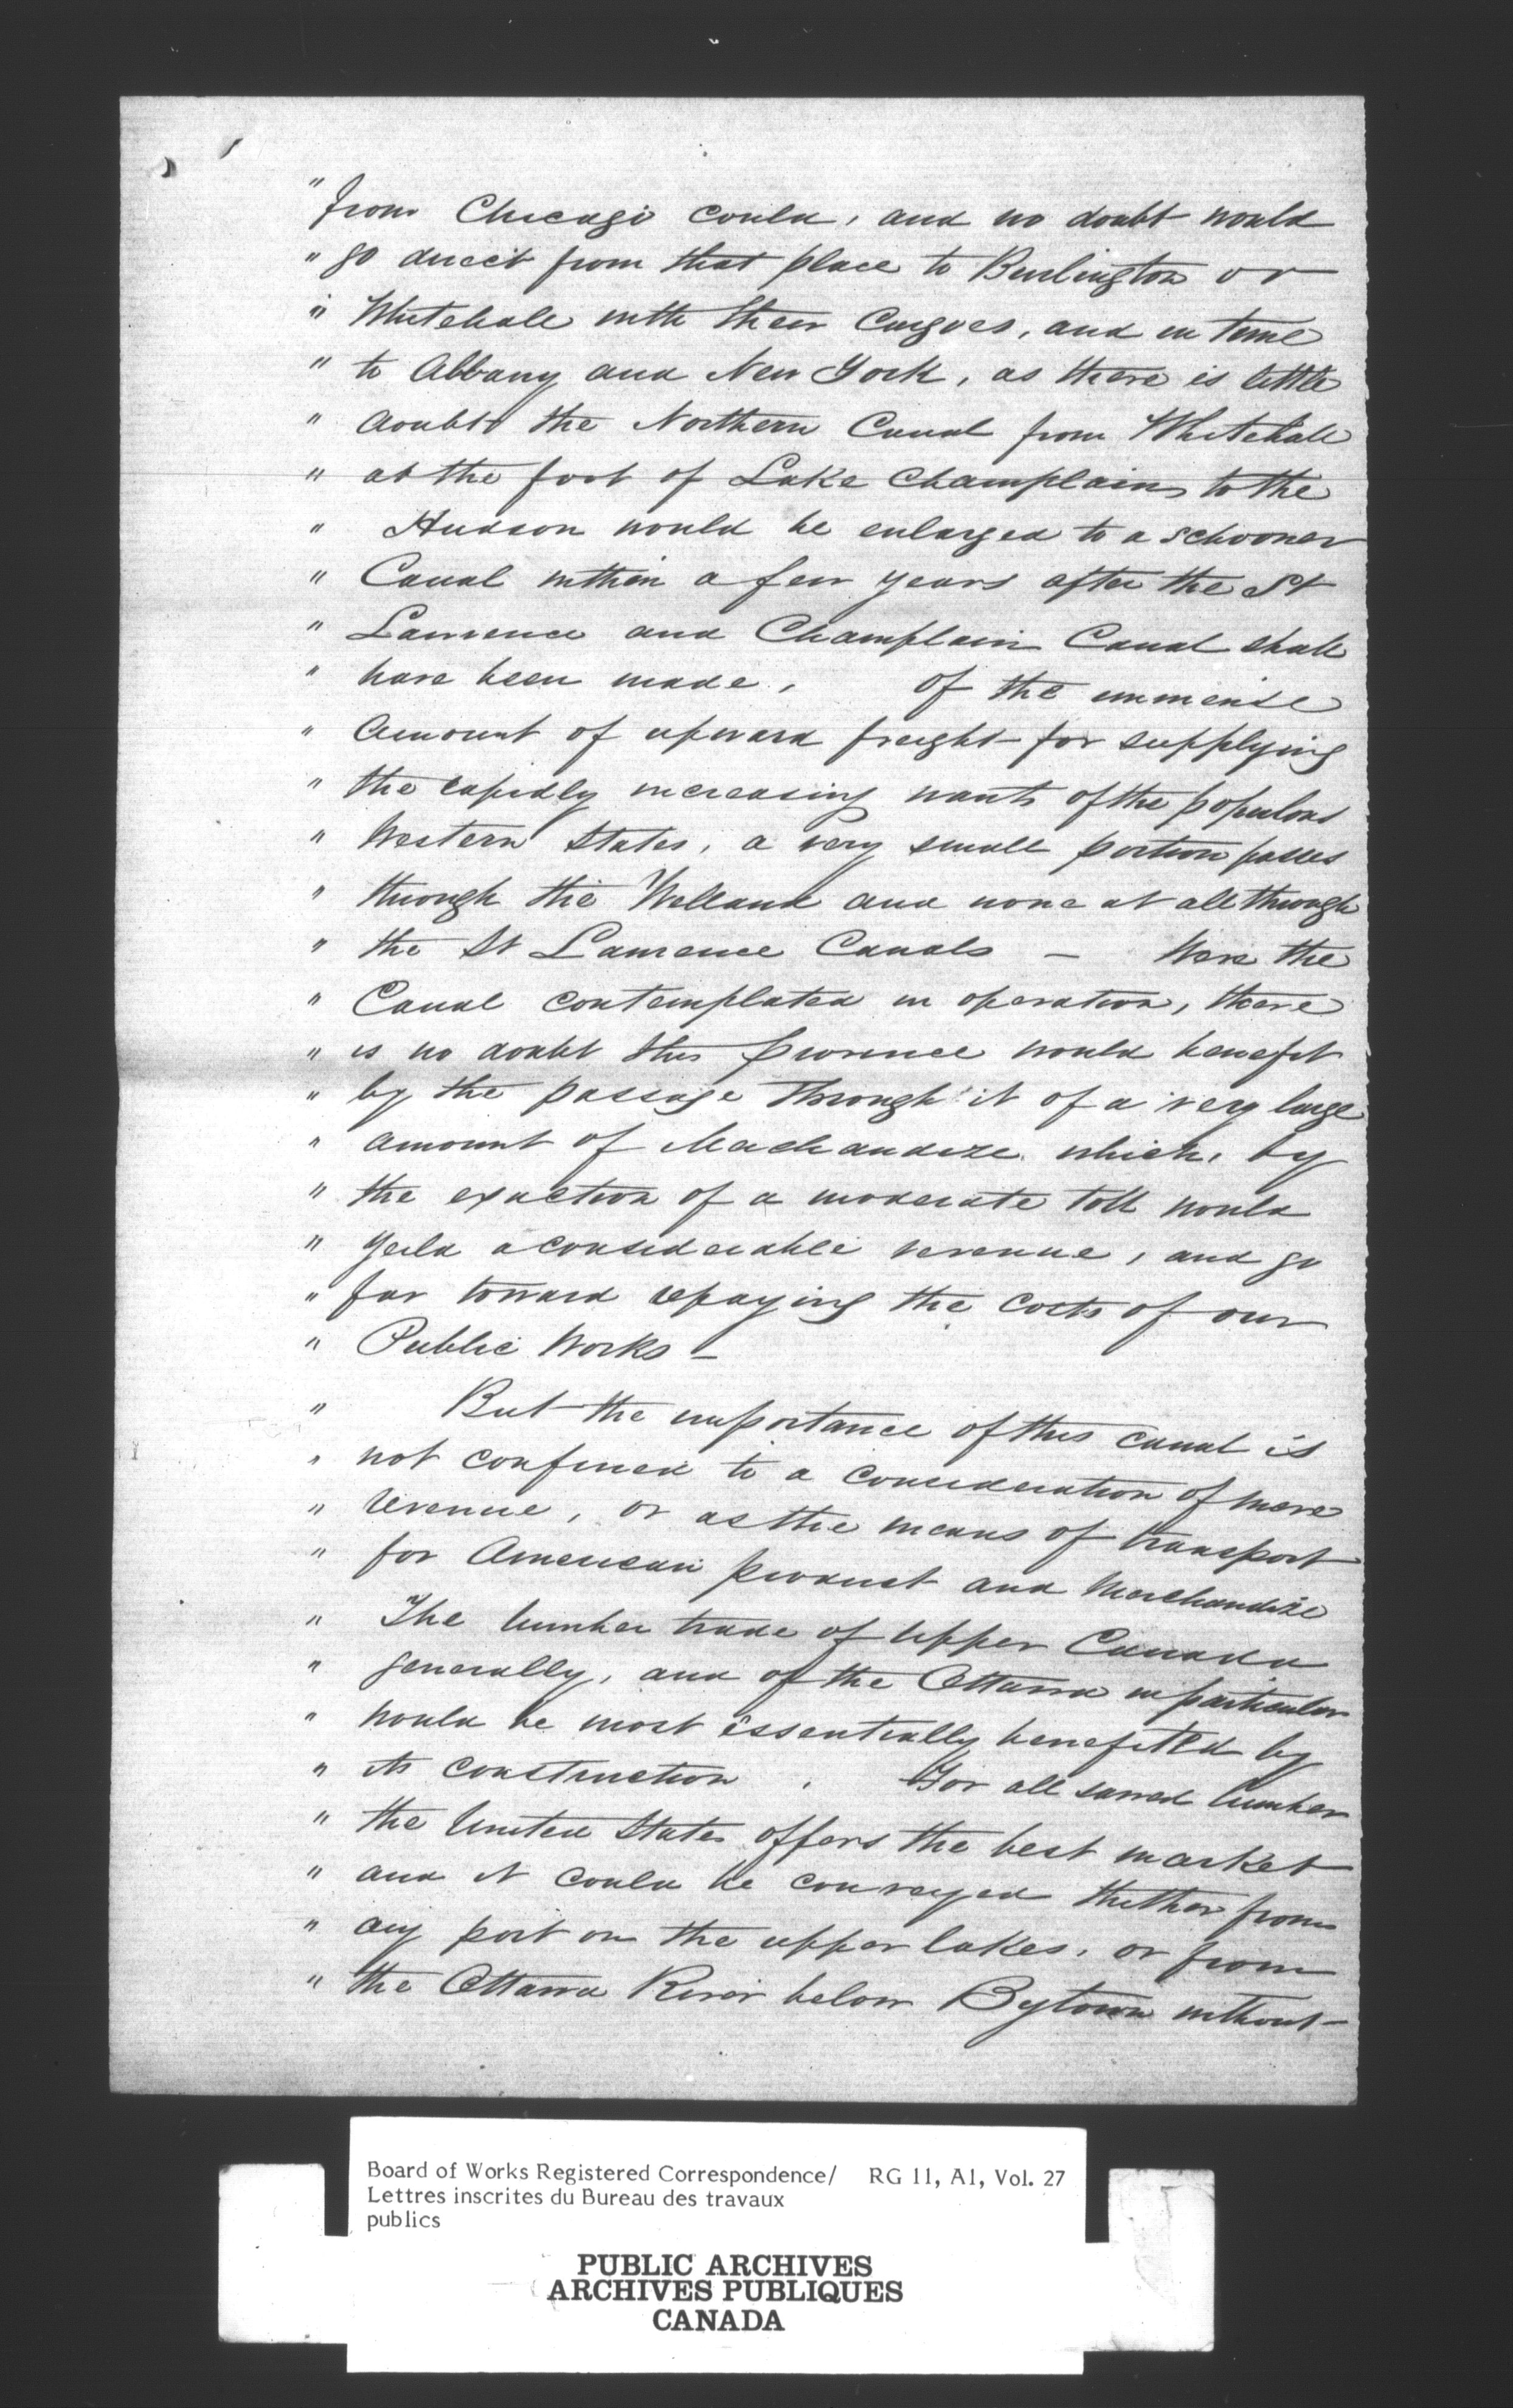 " from Chicago could, and no doubt would
" go direct from that place to Burlington or
" Whitehale with their Cargoes, and in time
" to Albany and New York, as there is little
" doubt the Northern Canal from Whitehall
" at the foot of Lake Champlain to the
" Hudson would be enlarged to a schooner
" Canal within a few years after the St
" Lawrence and Champlain Canal shall
" have been made, of the immense
" Amount of upward freight for supplying
" the rapidly increasing wants of the populous
" Western States, a very small portion passes
" through the Welland and none at all through
" the St Lawrence Canals — Were the
" Canal contemplated in operation, there
" is no doubt this province would benefit
" by the passage through it of a very large
" amount of Merchandize which, by
" the exaction of a moderate toll would
" yeild a considerable revenue, and go
" far toward repaying the costs of our
" Public Works —
" But the importance of this canal is
" not confined to a consideration of mere
" revenue, or as the means of transport
" for American product and Merchandize
" The lumber trade of Upper Canada
" generally, and of the Ottawa in particular
" would be most essentially benefited by
" its construction . For all sawed lumber
" the United States offers the best market
" and it could be conveyed thither from
" any port on the upper lakes, or from
" the Ottawa River below Bytown without
Board of Works Registered Correspondence/ RG 11, A1, Vol. 27
Lettres inscrites du Bureau des travaux
publics
PUBLIC ARCHIVES
ARCHIVES PUBLIQUES
CANADA